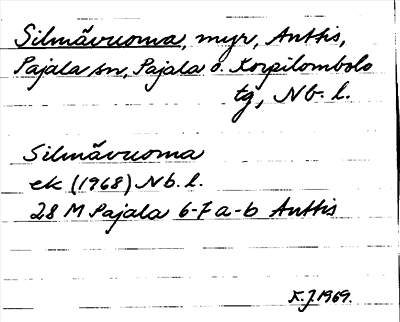 Silmävuoma, myr, Anttis,
Pajala sn, Pajala o. Korpilombolo
tg, Nb. l.
Silmävuoma
ek (1968) Nb. l.
28 M Pajala 6-7 a-b Anttis
K.J 1969.